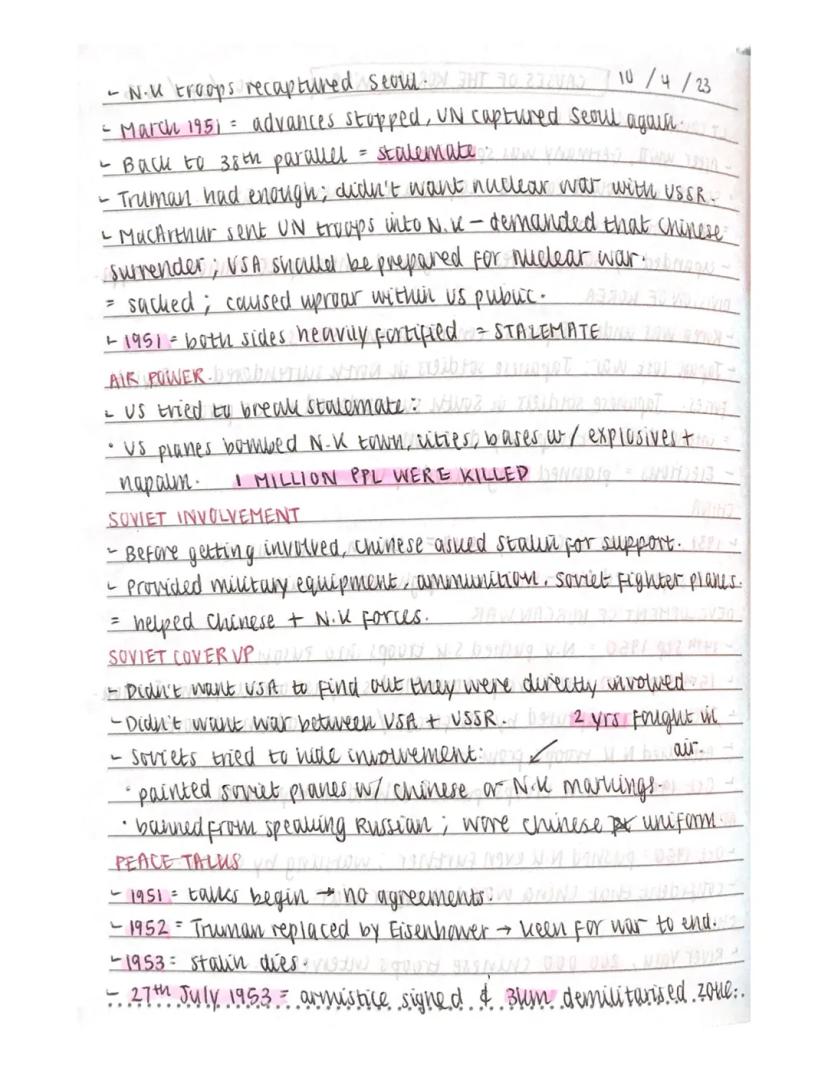 - N.K troops recaptured Seoul. 10/4/23
- March 1951 = advances stopped, UN captured Seoul again.
- Back to 38th parallel = stalemate.
- Truman had enough; didn't want nuclear war with USSR.
- MacArthur sent UN troops into N.K - demanded that Chinese
surrender; USA should be prepared for nuclear war.
= sacked; caused uproar within US public.
- 1951 = both sides heavily fortified = STALEMATE
AIR POWER.
- US tried to break stalemate:
· US planes bombed N.K town, cities, bases w/ explosives +
napalm. 1 MILLION PPL WERE KILLED
SOVIET INVOLVEMENT
- Before getting involved, Chinese asked Stalin for support.
- Provided military equipment, ammunition, soviet fighter planes.
= helped Chinese + N.K forces.
SOVIET COVER UP
- Didn't want USA to find out they were directly involved.
- Didn't want war between USA + USSR. 2 yrs fought in
- Soviets tried to hide involvement: ↙ air.
· painted soviet planes w/ Chinese or N.K markings.
· banned from speaking Russian; wore Chinese uniform.
PEACE TALKS
- 1951 = talks begin → no agreements.
- 1952 = Truman replaced by Eisenhower → keen for war to end.
- 1953 = Stalin dies.
- 27th July 1953 = armistice signed & 3km demilitarised zone.